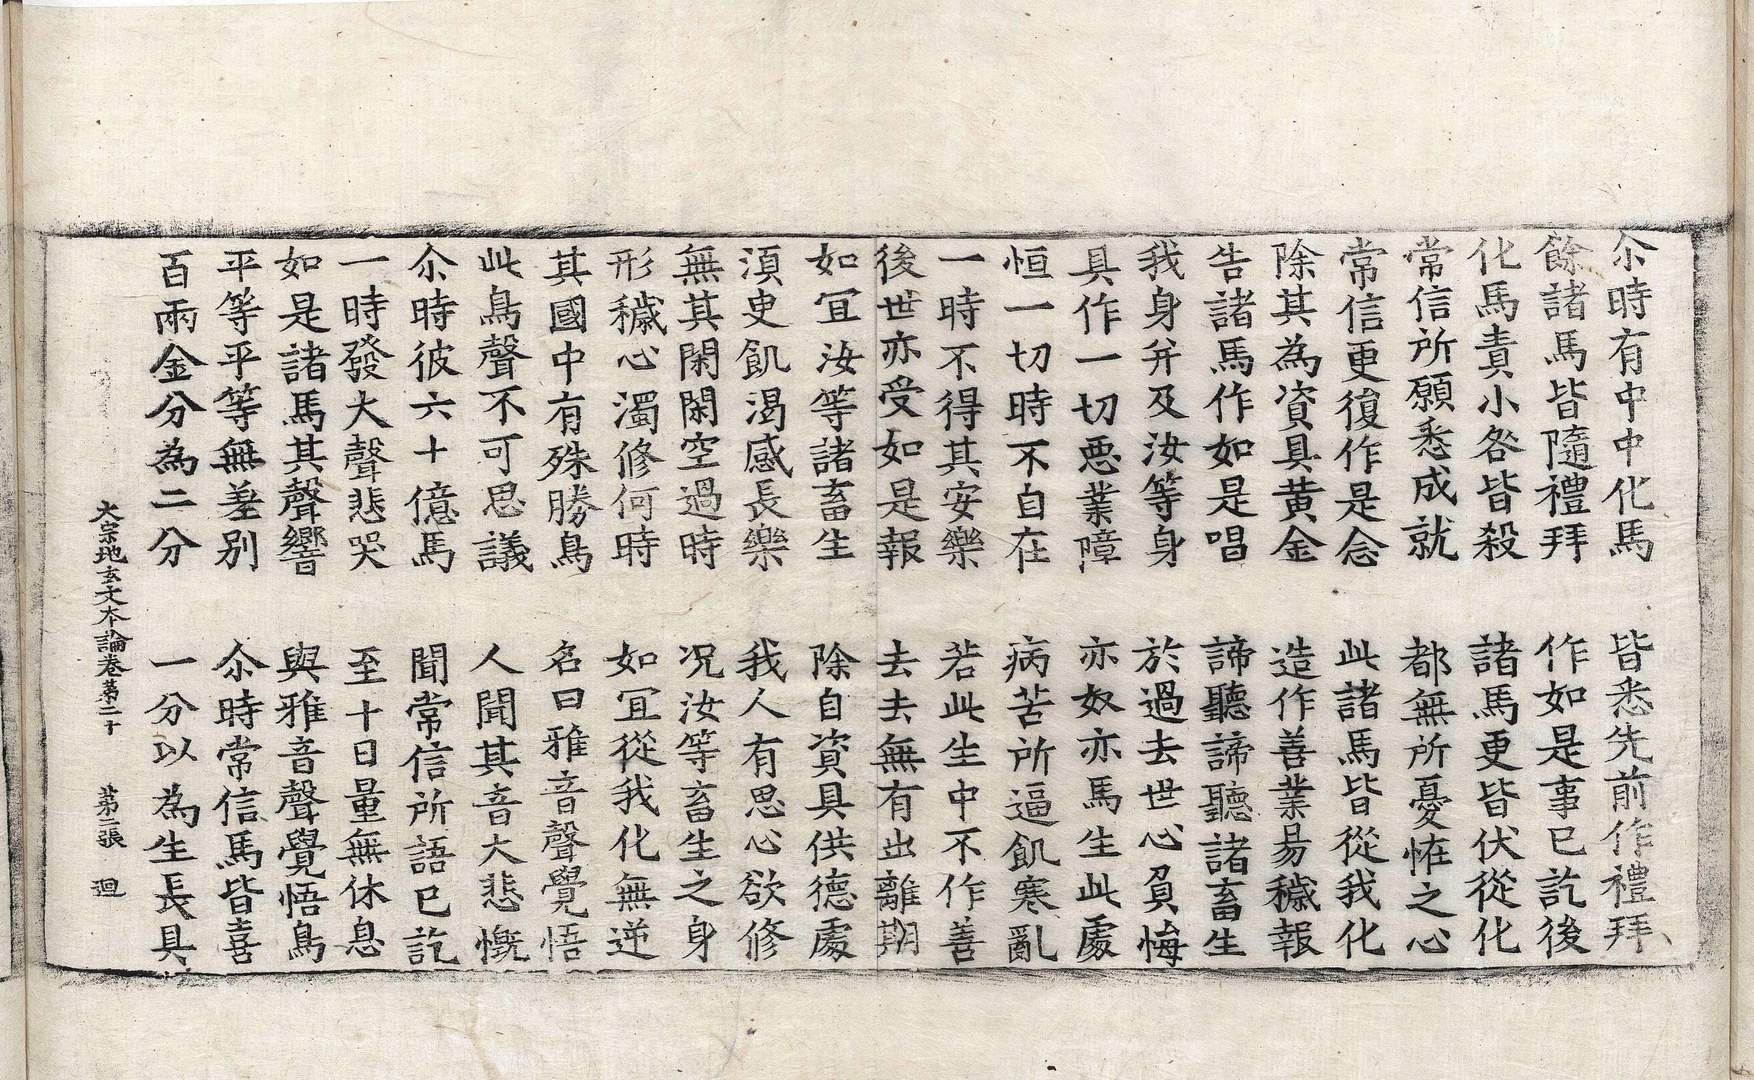 尒時有中中化馬　皆悉先前作禮拜
餘諸馬皆隨禮拜　作如是事已訖後
化馬責小咎皆殺　諸馬更皆伏從化
常信所願悉成就　都無所憂恠之心
常信更復作是念　此諸馬皆從我化
除其為資具黄金　造作善業易穢報
告諸馬作如是唱　諦聽諦聽諸畜生
我身并及汝等身　於過去世心負悔
具作一切惡業障　亦奴亦馬生此處
恒一切時不自在　病苦所逼飢寒亂
一時不得其安樂　若此生中不作善
後世亦受如是報　去去無有出離期
如冝汝等諸畜生　除自資具供德處
須臾飢渴感長樂　我人有思心欲修
無其閑閑空過時　况汝等畜生之身
形穢心濁修何時　如冝從我化無逆
其國中有殊勝鳥　名曰雅音聲覺悟
此鳥聲不可思議　人聞其音大悲慨
尒時彼六十億馬　聞常信所語已訖
一時發大聲悲哭　至十日量無休息
如是諸馬其聲響　與雅音聲覺悟鳥
平等平等無差别　尒時常信馬皆喜
百兩金分為二分　一分以為生長具
大宗地玄文本論卷苐二十　苐二張　迴